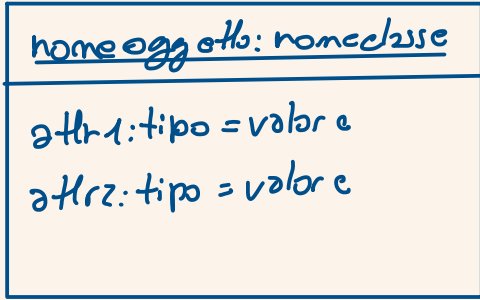 nomeoggetto: nomeclasse
attr1: tipo = valore
attr2: tipo = valore